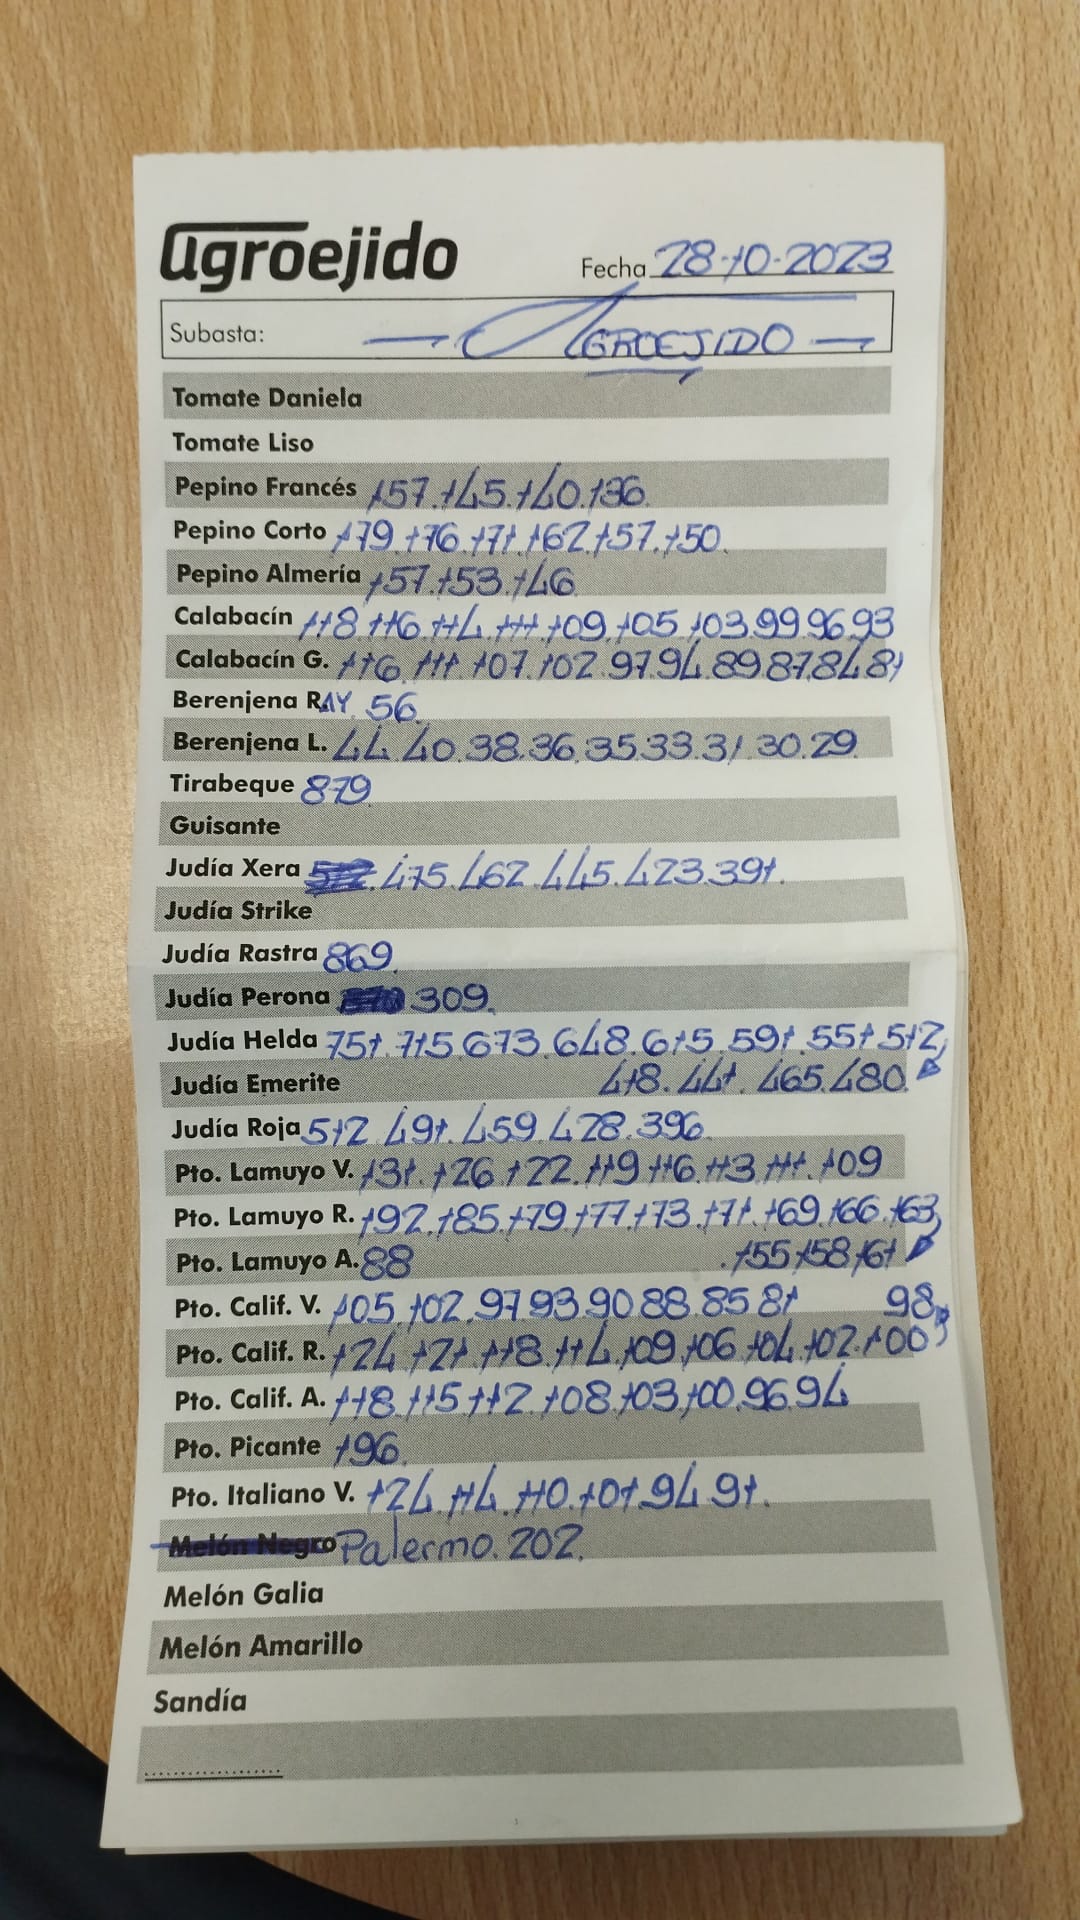 agroejido
Fecha 28-10-2023
Subasta: — AGROEJIDO —
Tomate Daniela
Tomate Liso
Pepino Francés 157.145.140.136.
Pepino Corto 179.176.171.162.157.150.
Pepino Almería 157.153.146
Calabacín 118.116.114.111.109.105.103.99.96.93
Calabacín G. 116.111.107.102.97.94.89.87.84.81
Berenjena RAY 56.
Berenjena L. 44.40.38.36.35.33.31.30.29.
Tirabeque 879
Guisante
Judía Xera 475.462.445.423.391.
Judía Strike
Judía Rastra 869.
Judía Perona 309.
Judía Helda 751.715.673.648.615.591.551.512,
Judía Emerite 418.441.465.480.
Judía Roja 512.491.459.428.396.
Pto. Lamuyo V. 131.126.122.119.116.113.111.109
Pto. Lamuyo R. 192.185.179.177.173.171.169.166.163,
Pto. Lamuyo A. 88 .155.158.161
Pto. Calif. V. 105.102.97.93.90.88.85.81 98,
Pto. Calif. R. 124.121.118.114.109.106.104.102.100
Pto. Calif. A. 118.115.112.108.103.100.96.94
Pto. Picante 196.
Pto. Italiano V. 124.114.110.101.94.91.
Melón Negro Palermo. 202.
Melón Galia
Melón Amarillo
Sandía